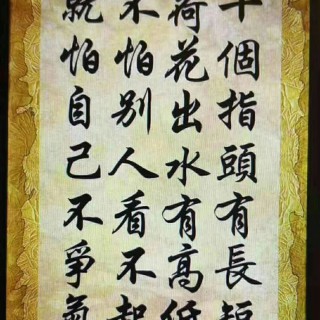 十個指頭有長短
荷花出水有高低
不怕別人看不起
就怕自己不爭氣